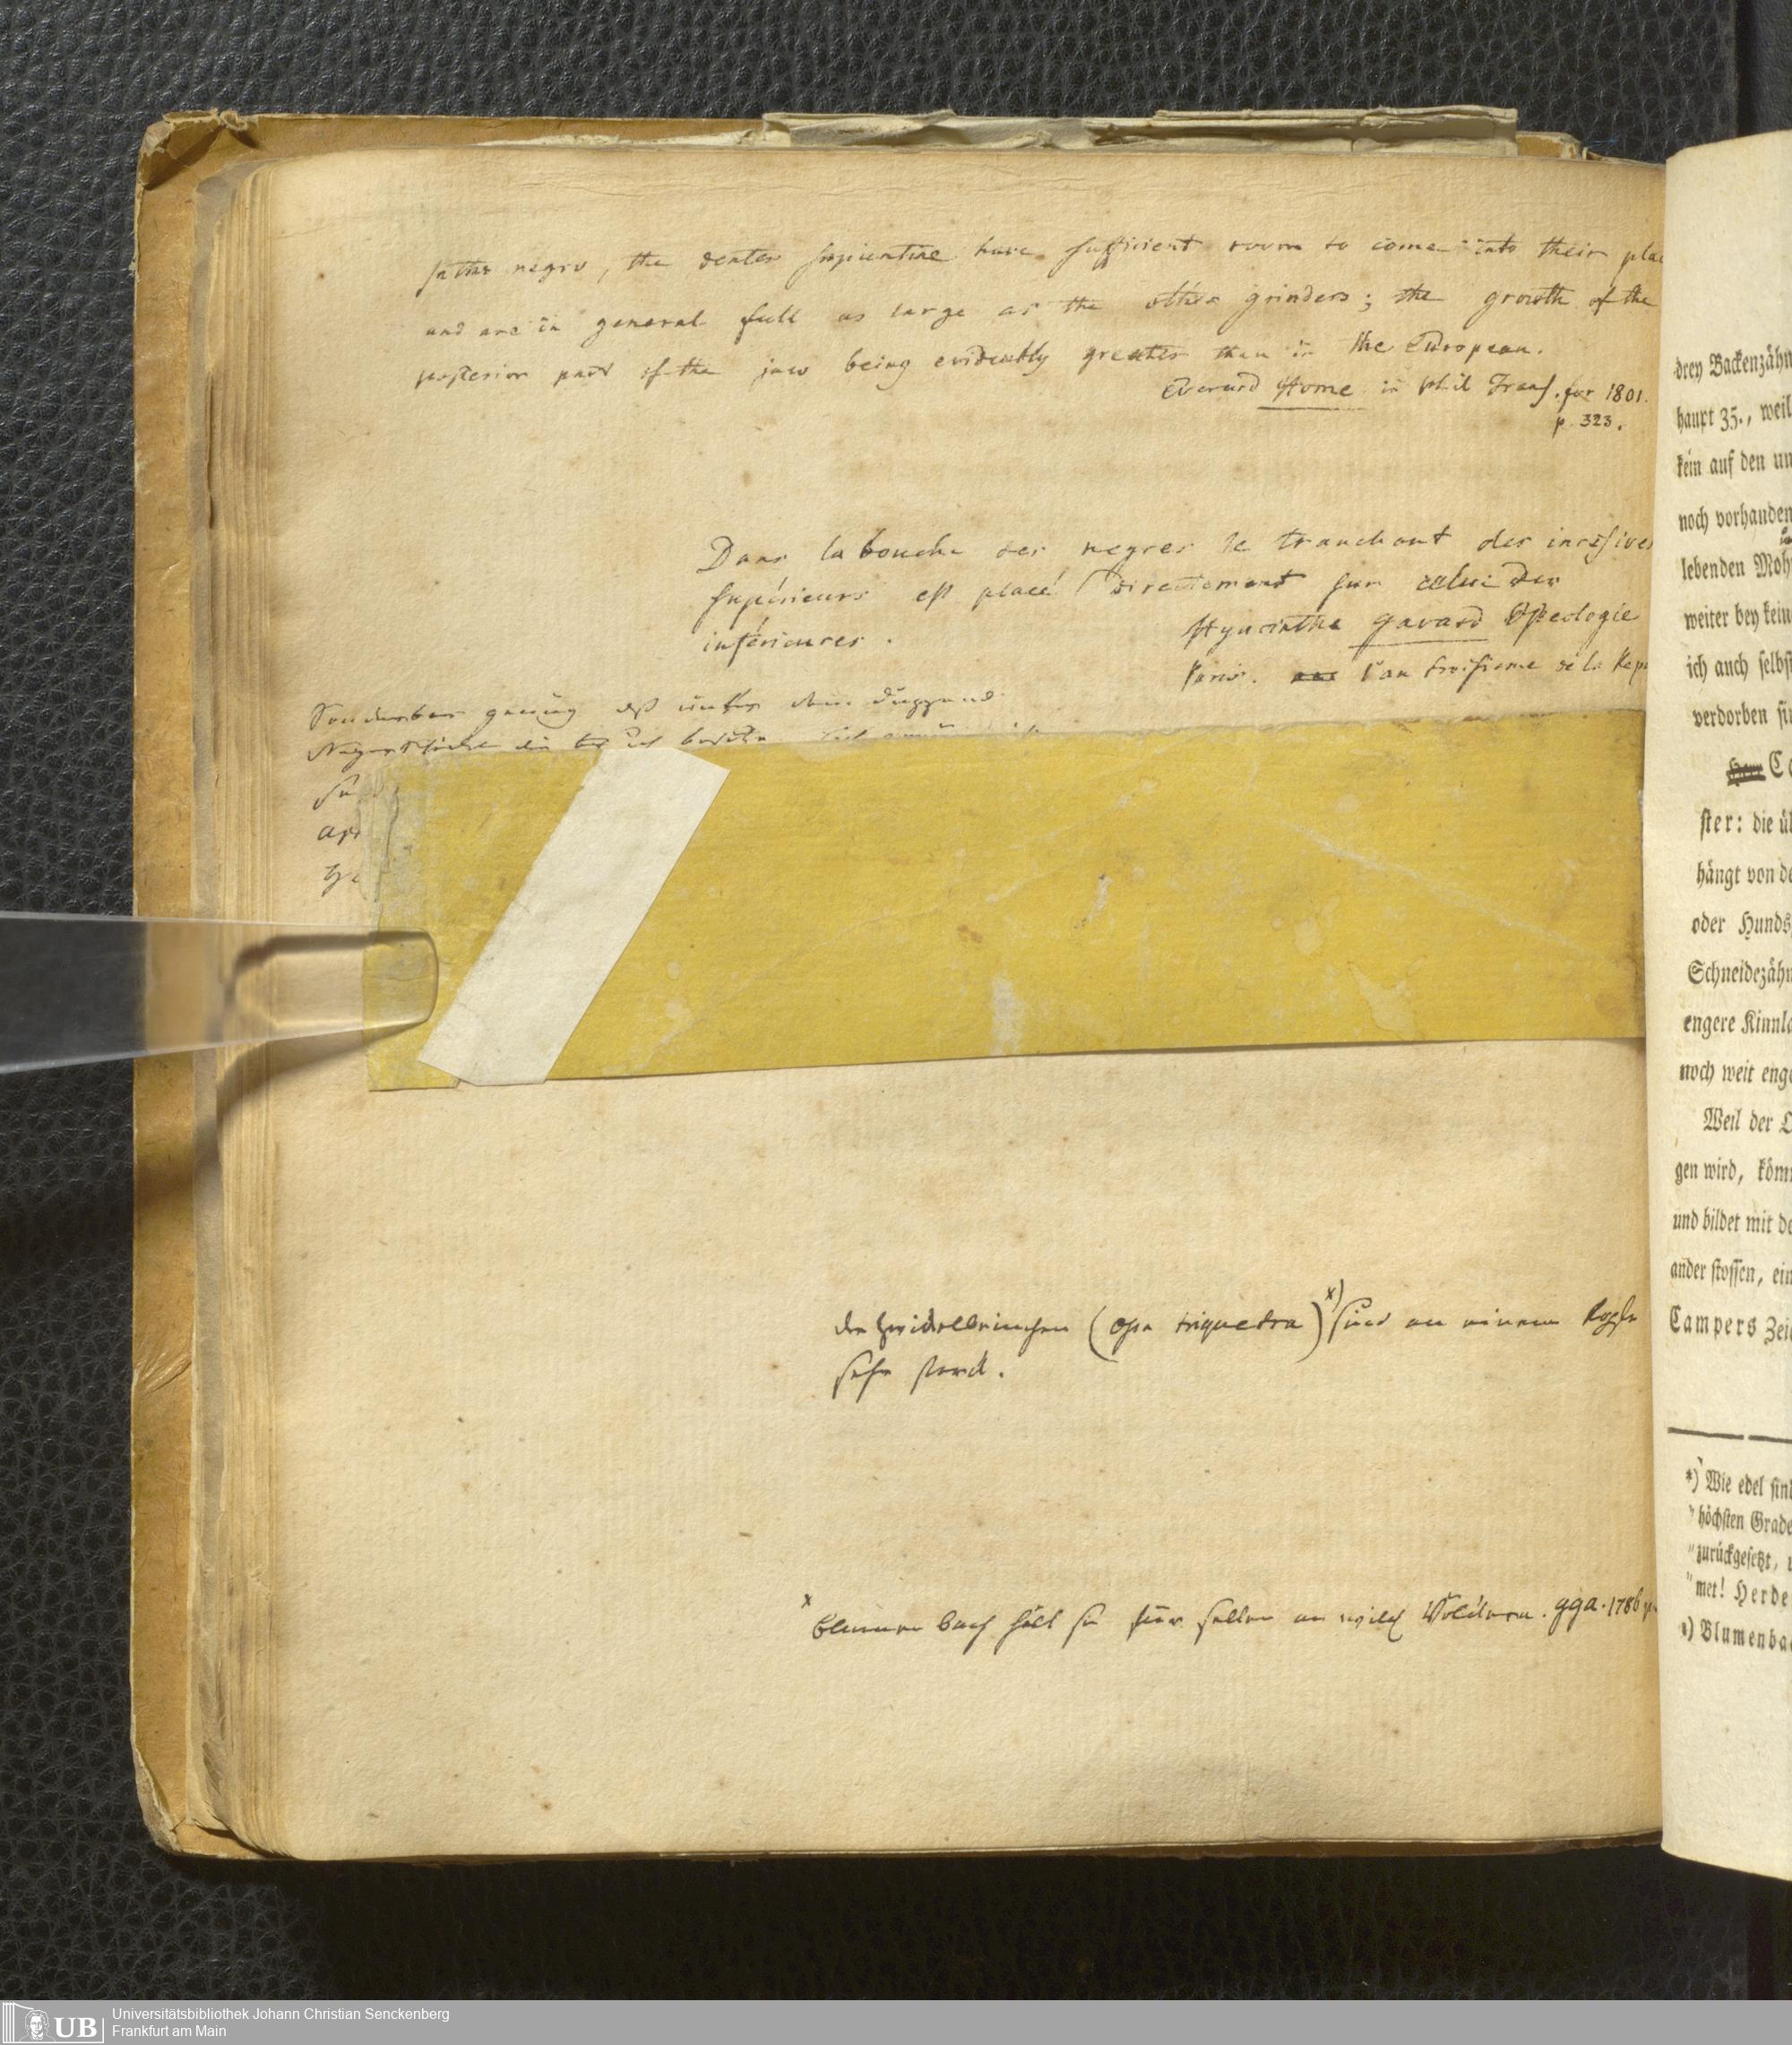 In the negro, the dentes sapientiae have sufficient room to come into their plac
and are in general full as large as the other grinders; the growth of the
posterior part of the jaw being evidently greater than in the European.
Everard Home in Phil Trans. for 1801.
p. 323.
Dans la bouche des negres le tranchant des incisives
supérieurs est placé directement sur celui des
inférieures.
Hyacinthe Gavard Osteologie
Paris. l'an troisieme de la Rep
Sonderbar genung daß unter dem Duzzend
die ich besitze
zwickelbeinchen (ossa triquetra) x) sind an einem Kopfe
sehr starck.
x
Blumenbach hält sie für selten an wilden Völckern. gga. 1786 p
drey Backenzähn
haupt 35., weil
kein auf den un
noch vorhanden
lebenden Moh
weiter bey kein
ich auch selbst
verdorben si
Herr C
ster: die ü
hängt von de
oder Hunds
Schneidezähn
engere Kinnla
noch weit enge
Weil der O
gen wird, köm
und bildet mit de
ander stossen, ein
Campers Zei
*) Wie edel sind
"höchsten Grade
"zurückgesetzt, u
"met! Herde
) Blumenba
UB
Universitätsbibliothek Johann Christian Senckenberg
Frankfurt am Main